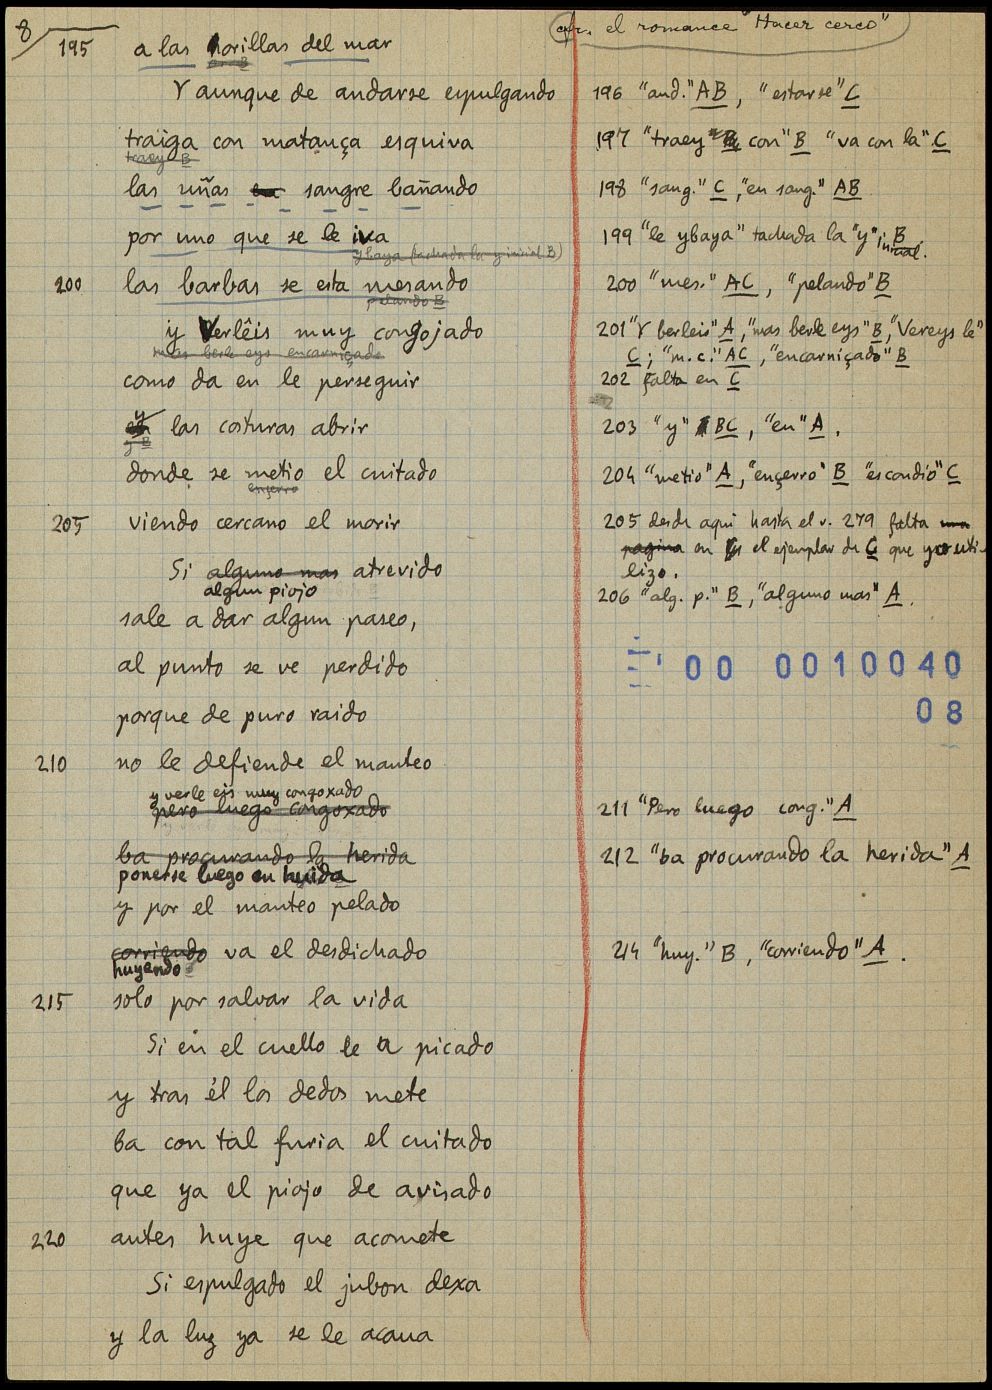 8
cfr. el romance "Hacer cerco"
195 a las orillas del mar
Y aunque de andarse espulgando
traiga con matança esquiva
traey B
las uñas en sangre bañando
por uno que se le iva
ybaya (tachada la y inicial B)
200 las barbas se esta mesando
pelando B
y Verlêis muy congojado
mas berle eys encarniçado
como da en le perseguir
y
en las costuras abrir
y B
donde se metio el cuitado
ençerro
205 viendo cercano el morir
Si alguno mas atrevido
algun piojo
sale a dar algun paseo,
al punto se ve perdido
porque de puro raido
210 no le defiende el manteo
y verle eis muy congoxado
pero luego congoxado
ba procurando la herida
ponerse luego en huida
y por el manteo pelado
corriendo va el desdichado
huyendo
215 solo por salvar la vida
Si en el cuello le a picado
y tras él los dedos mete
ba con tal furia el cuitado
que ya el piojo de avisado
220 antes huye que acomete
Si espulgado el jubon dexa
y la luz ya se le acaua
196 "and." AB, "estarse" C
197 "traey con" B "va con la" C
198 "sang." C, "en sang." AB
199 "le ybaya" tachada la "y" inicial. B
200 "mes." AC, "pelando" B
201 "Y berleis" A, "mas berle eys" B, "Vereys le"
C; "m.c." AC, "encarniçado" B
202 falta en C
203 "y" BC, "en" A.
204 "metio" A, "ençerro" B "escondió" C
205 desde aqui hasta el v. 279 falta una
pagina en el ejemplar de C que yo uti-
lizo.
206 "alg. p." B, "alguno mas" A.
00 0010040
08
211 "Pero luego cong." A
212 "ba procurando la herida" A
214 "huy." B, "corriendo" A.